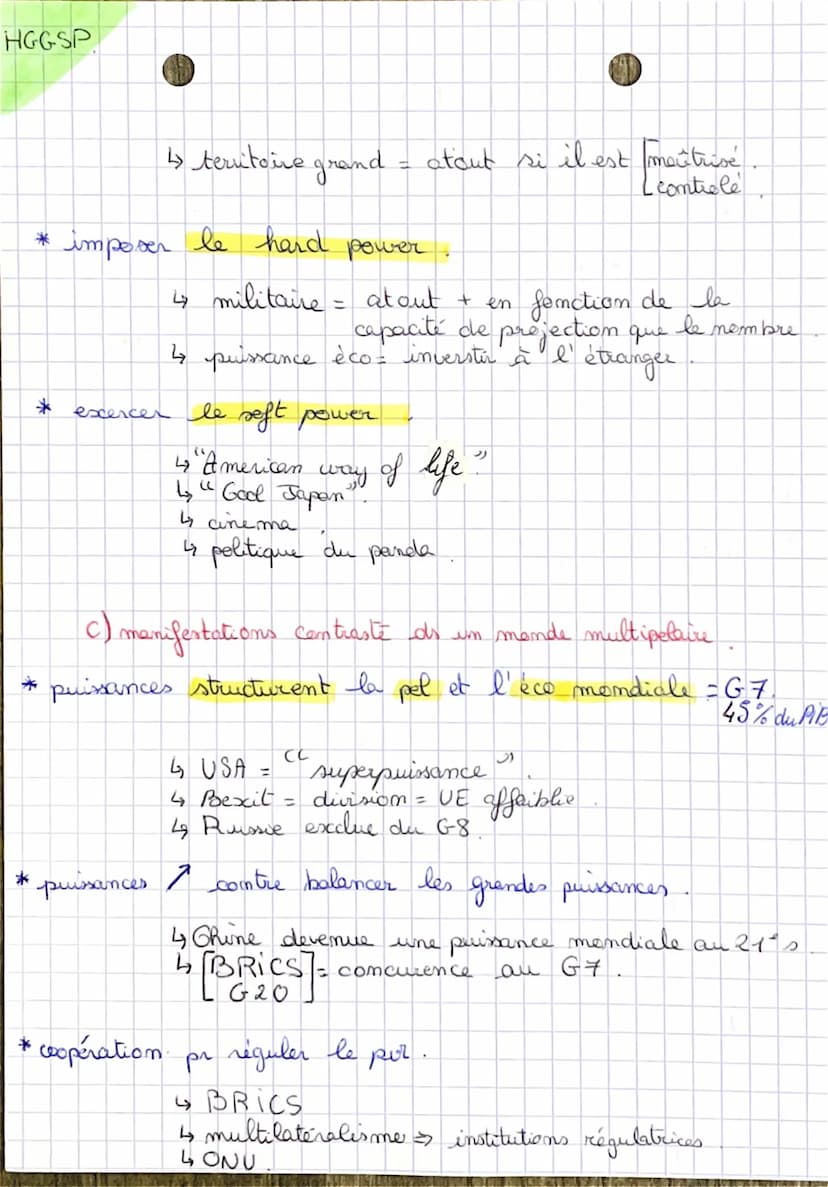 HGGSP
↳ territoire grand = atout si il est [maîtrisé.
[contrôlé.
* imposer le hard power.
↳ militaire = atout + en fonction de la
capacité de projection que le nombre.
↳ puissance éco = inverstir à l'étranger.
* exercer le soft power.
↳ "American way of life"
↳ "Cool Japan".
↳ cinema.
↳ politique du panda.
c) manifestations contrasté ds un monde multipolaire.
* puissances structurent la pol et l'éco mondiale = G7.
45% du PIB
↳ USA = "superpuissance".
↳ Bexit = division = UE affaiblie.
↳ Russie exclue du G8.
* puissances ↗ contre balancer les grandes puissances.
↳ Chine devenue une puissance mondiale au 21e s.
↳ [BRiCS] = concurence au G7.
[G20]
* coopération pr réguler le
↳ BRiCS
↳ multilatéralisme ⇒ institutions régulatrices.
↳ ONU.